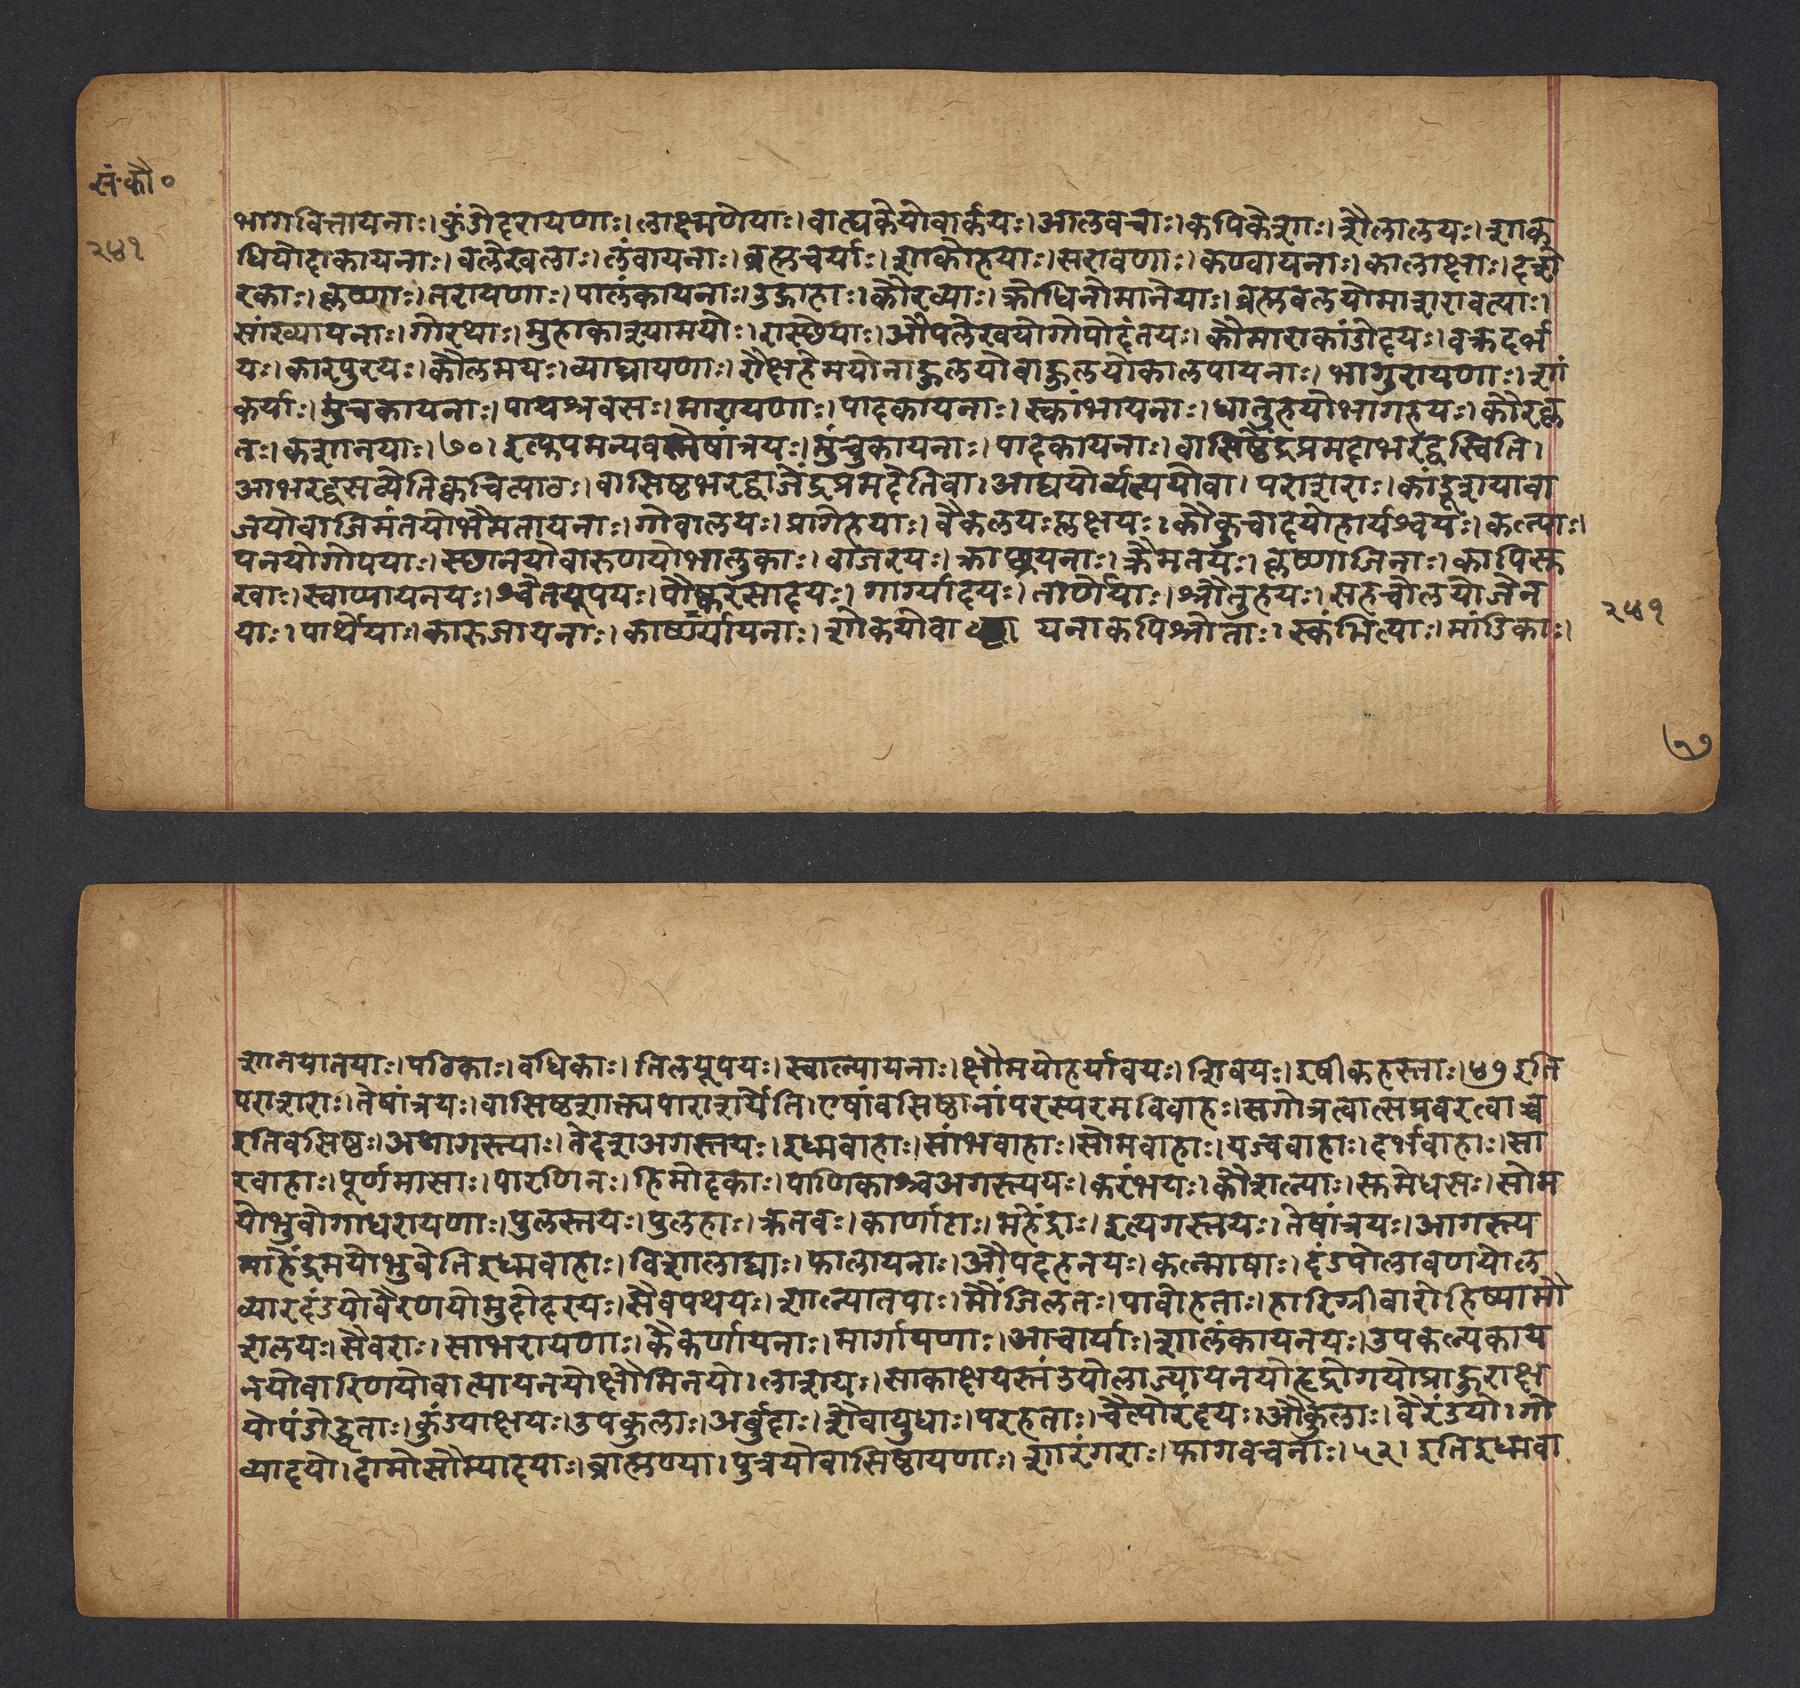 सं॰कौ०
२५१
भागवित्तायनाः।कुंडोदरायणाः।लाक्ष्मणेयाः।वात्यकेयोवार्कयः।आलवचाः।कपिकेशाः।शैलालयः।शाक
धियोदाकायनाः।वलेखलाः।लंवायनाः।ब्रह्मचर्याः।शाकोहयाः।सरावणाः।कण्वायनाः।कालाक्षाः।
रकाः।कृष्णाः।तरायणाः।पालंकायनाः।उद्गाहाः।कौरव्याः।क्रोधिनोमानेयाः।ब्रह्मवलयोमाशरावत्याः।
सांख्यायनाः।गोरथाः।मुहाकाशयामयोः।रास्छेयाः।औपलेखयोगोपोदंतयः।कौमाराकांडोदयः।वक्रदर्भ
यः।कारपुरयः।कौलमयः।व्याघ्रायणाः।रौक्षहेमयोनाकुलयोवाकुलयोकालपायनाः।भागुरायणाः।शां
कर्याः।मुंचकायनाः।पाथश्रवसः।मारायणाः।पादकायनाः।स्कांभायनाः।धानुहयोभागहयः।कौरकृ
तः।कशानयाः।७०।इत्युपमन्यवस्तेषांत्रयः।मुंचुकायनाः।पादकायनाः।वासिष्ठेंद्रप्रमदाभरद्वस्विति।
आभरद्वसव्येतिक्वचित्पाठः।वासिष्ठभरद्वाजेंद्रप्रमदेतिवा।आद्ययोर्व्यत्ययोवा।पराशराः।कांडूशयावा
जयोवाजिमंतयोभैमतायनाः।गोवालयः।प्रागेहयाः।वैकलयःप्लक्षयः।कौकुचादयोहार्यश्वयः।कल्पाः।
पनयोगोपयाः।स्छानयोवारुणयोभालुकाः।वाजरयः।क्रौमतयः।कृष्णाजिनाः।कापिस्क
खाः।स्वाप्यायनयः।श्वेतयूपयः।पौष्करसादयः।गार्ग्यादयः।तार्णेयाः।श्रौतुहयः।सहचौलयोजैन
याः।पार्थेयाः।कारुजायनाः।काष्णर्यायनाः।शोकयोवा यनाकपिश्रोताः।स्कंभित्याः।मांडिकाः।
२५१
७१
शातयातयाः।पठिकाः।वधिकाः।तिलयूपयः।स्वाल्पायनाः।क्षौमयोहर्यावयः।शिवयः।इषीकहस्ताः।५१इति
पराशराः।तेषांत्रयः।वासिष्ठशाक्त्यपाराशर्येति।एषांवसिष्ठानांपरस्परमविवाहः।सगोत्रत्वात्सप्रवरत्वाच्च
इतिवसिष्ठः।अथागस्त्याः।तेदशअगस्तयः।इध्मवाहाः।सांभवाहाः।सोमवाहाः।यज्ञवाहाः।दर्भवाहाः।सा
रवाहाः।पूर्णमासाः।पारणिनः।हिमोदकाः।पाणिकाश्चअगस्त्ययः।करंभयः।कौशल्याः।स्क्तमेधसः।सोम
योभुवोगाधरायणाः।पुलस्तयः।पुलहाः।क्रतवः।कार्णाटाः।महेंद्राः।इत्यगस्तयः।तेषांत्रयः।आगस्त्य
माहेंद्रमयोभुवेतिइध्मवाहाः।विशालाद्याः।फालायनाः।औपदहनयः।कल्माषाः।दंडपोलावणयोल
व्यारदंडयोवैरणयोमुदोदरयः।सैवपथयः।शाल्यातपाः।मौंजिलतः।पावोहताः।हारिग्रीवारोहिष्यामौ
शलयः।सैवराः।साभरायणाः।कैकर्णायनाः।मार्गायणाः।आचार्याः।शालंकायनयः।उपकल्पकाय
नयोवारिणयोवात्यायनयोक्षौमिनयो।लाशयः।साकाक्षयस्तंडयोलाज्यायनयोहृद्रोगयोप्राकुराक्ष
योपंडोद्धताः।कुंड्याक्षयः।उपकुलाः।अर्बुदाः।शैवायुधाः।परहताः।चैत्योरंदयः।औकुलाः।वैरंडयो।गौ
व्यादयो।दामोसौम्यादयाः।ब्राह्मण्या।पुत्रयोवासिष्ठायणाः।शारंगराः।फागवचनाः।५२।इतिइध्मवा